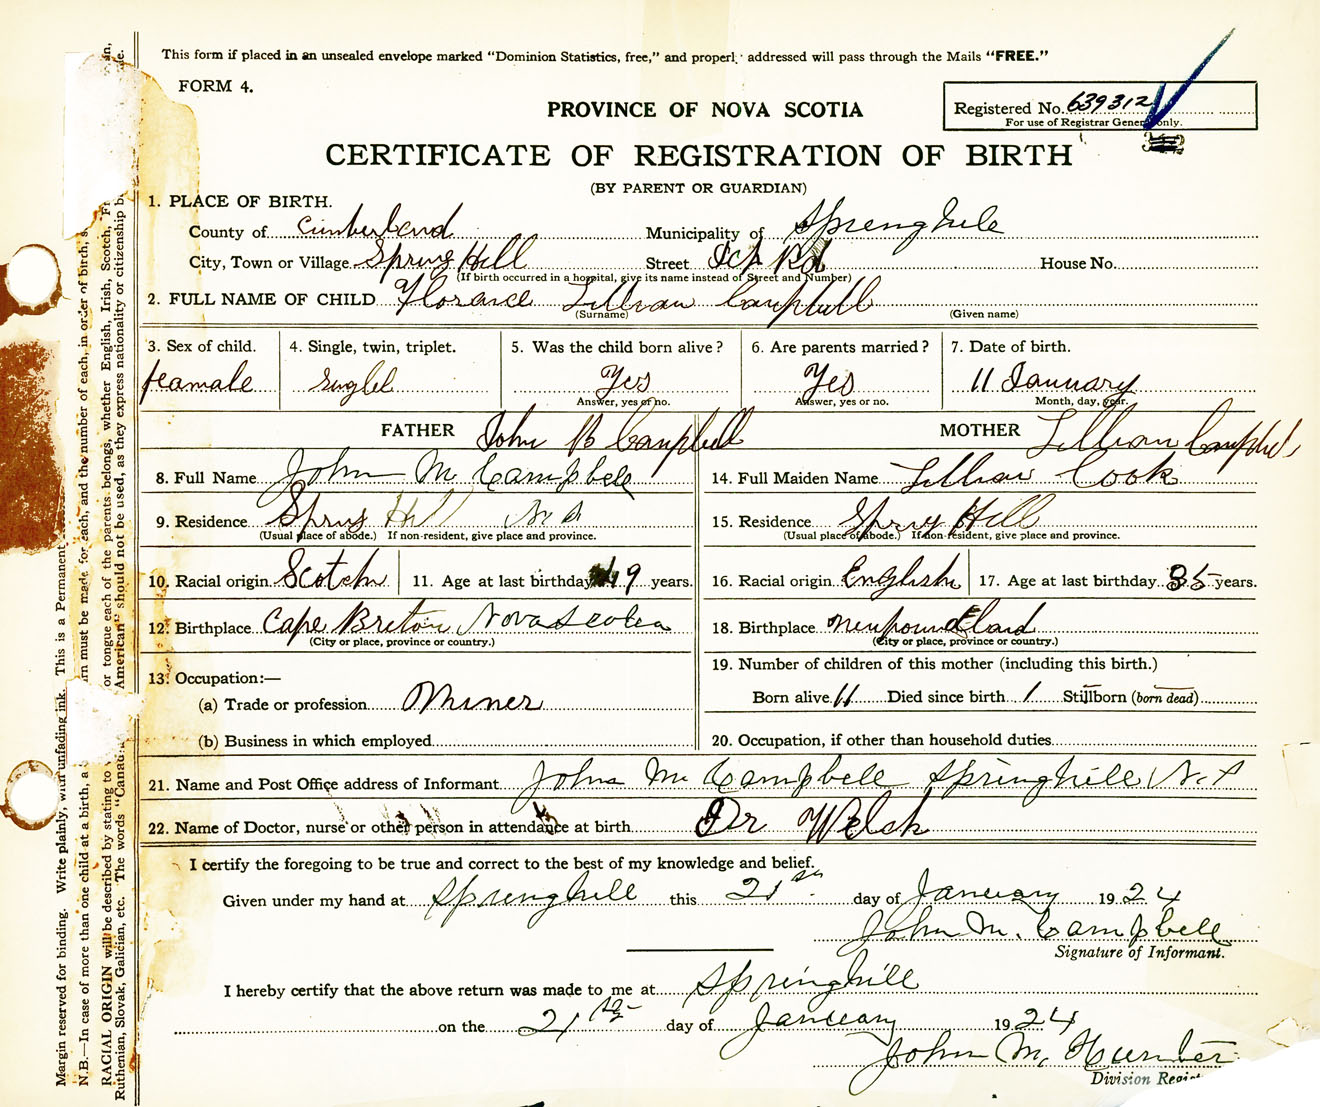 This form if placed in an unsealed envelope marked "Dominion Statistics, free," and properly addressed will pass through the Mails "FREE."
FORM 4.
PROVINCE OF NOVA SCOTIA
Registered No. 639312
For use of Registrar General only.
CERTIFICATE OF REGISTRATION OF BIRTH
(BY PARENT OR GUARDIAN)
1. PLACE OF BIRTH.
County of Cumberland Municipality of Springhill
City, Town or Village Spring Hill Street Rd House No.
(If birth occurred in a hospital, give its name instead of Street and Number)
2. FULL NAME OF CHILD Florance Lillian Campbell
(Surname) (Given name)
3. Sex of child. 4. Single, twin, triplet. 5. Was the child born alive? 6. Are parents married? 7. Date of birth.
feamale Singlel Yes Yes 11 January
Answer, yes or no. Answer, yes or no. Month, day, year.
FATHER John B Campbell MOTHER Lillian Campbell
8. Full Name John M Campbell 14. Full Maiden Name Lillian Cook
9. Residence Spring Hill N S 15. Residence Spring Hill
(Usual place of abode.) If non-resident, give place and province. (Usual place of abode.) If non-resident, give place and province.
10. Racial origin Scotch 11. Age at last birthday 49 years. 16. Racial origin English 17. Age at last birthday 35 years.
12. Birthplace Cape Breton Nova Scotia 18. Birthplace Newfoundland
(City or place, province or country.) (City or place, province or country.)
13. Occupation:— 19. Number of children of this mother (including this birth.)
(a) Trade or profession Miner Born alive 11 Died since birth 1 Stillborn (born dead)
(b) Business in which employed 20. Occupation, if other than household duties
21. Name and Post Office address of Informant John M Campbell Springhill N.S
22. Name of Doctor, nurse or other person in attendance at birth Dr Welch
I certify the foregoing to be true and correct to the best of my knowledge and belief.
Given under my hand at Springhill this 21st day of January 1924
John M. Campbell
Signature of Informant.
I hereby certify that the above return was made to me at Springhill
on the 21st day of January 1924
John M. Hunter
Division Regis
Margin reserved for binding. Write plainly, with unfading ink. This is a Permanent
N.B.—In case of more than one child at a birth, a rn must be made for each, and the number of each, in order of birth, s
RACIAL ORIGIN will be described by stating to or tongue each of the parents belongs, whether English, Irish, Scotch, Fr
Ruthenian, Slovak, Galician, etc. The words "Canad American" should not be used, as they express nationality or citizenship b